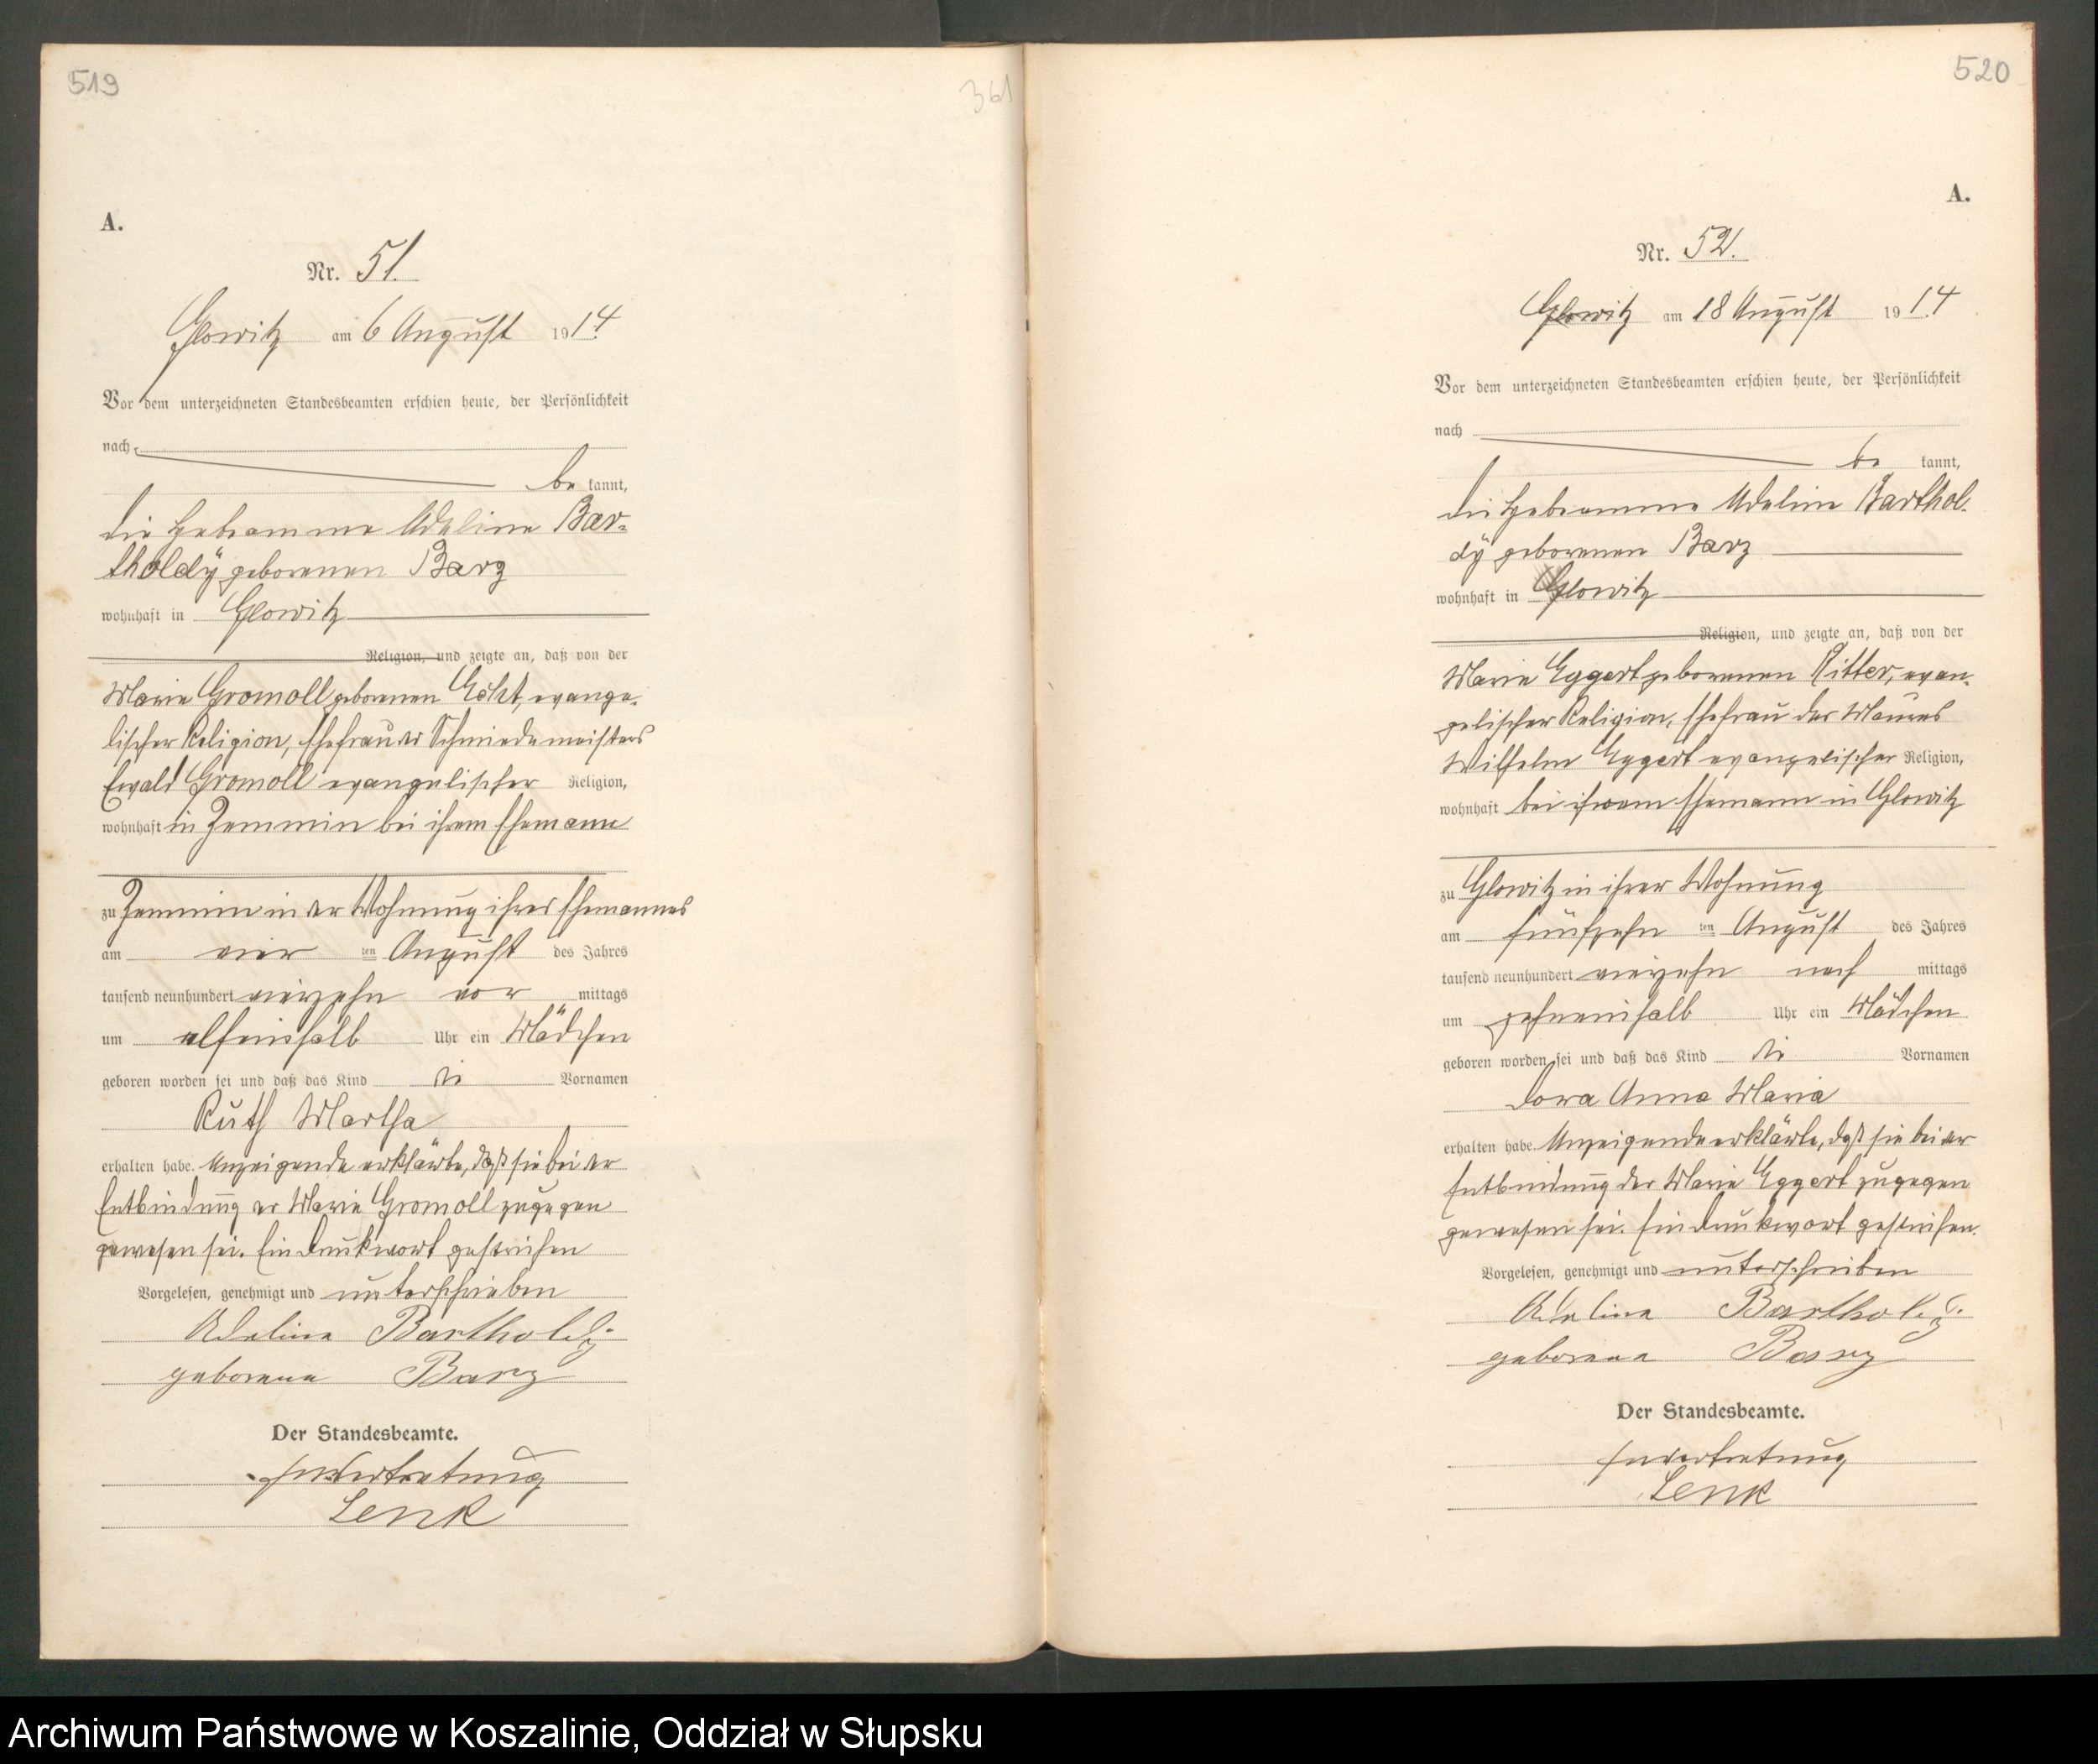 519
361
A.
Nr. 51.
Glowitz am 6 August 1914.
Vor dem unterzeichneten Standesbeamten erschien heute, der Persönlichkeit
nach
be kannt,
die Hebamme Adeline Bar-
tholdy geborenen Barz
wohnhaft in Glowitz
Religion, und zeigte an, daß von der
Marie Gromoll geborenen, evange-
lischer Religion, Ehefrau des Schmiedemeisters
Ewald Gromoll evangelischer Religion,
wohnhaft in Zemmin bei ihrem Ehemanne
zu Zemmin in der Wohnung ihres Ehemannes
am vier ten August des Jahres
tausend neunhundert vierzehn vor mittags
um elfeinhalb Uhr ein Mädchen
geboren worden sei und daß das Kind die Vornamen
Ruth Martha
erhalten habe. Anzeigende erklärte, daß sie bei der
Entbindung der Marie Gromoll zugegen
gewesen sei. Ein Druckwort gestrichen
Vorgelesen, genehmigt und unterschrieben
Adeline Bartholdy
geborene Barz
Der Standesbeamte.
In Vertretung
Lenk
520
A.
Nr. 52.
Glowitz am 18 August 1914
Vor dem unterzeichneten Standesbeamten erschien heute, der Persönlichkeit
nach
be kannt,
die Hebamme Adeline Barthol-
dy geborenen Barz
wohnhaft in Glowitz
Religion, und zeigte an, daß von der
Marie Eggert geborenen Ritter, evan-
gelischer Religion, Ehefrau des Maurers
Wilhelm Eggert evangelischer Religion,
wohnhaft bei ihrem Ehemann in Glowitz
zu Glowitz in ihrer Wohnung
am fünfzehn ten August des Jahres
tausend neunhundert vierzehn nach mittags
um zehneinhalb Uhr ein Mädchen
geboren worden sei und daß das Kind die Vornamen
Dora Anna Maria
erhalten habe. Anzeigende erklärte, daß sie bei der
Entbindung der Marie Eggert zugegen
gewesen sei. Ein Druckwort gestrichen.
Vorgelesen, genehmigt und unterschrieben
Adeline Bartholdy
geborene Barz
Der Standesbeamte.
In Vertretung
Lenk
Archiwum Państwowe w Koszalinie, Oddział w Słupsku